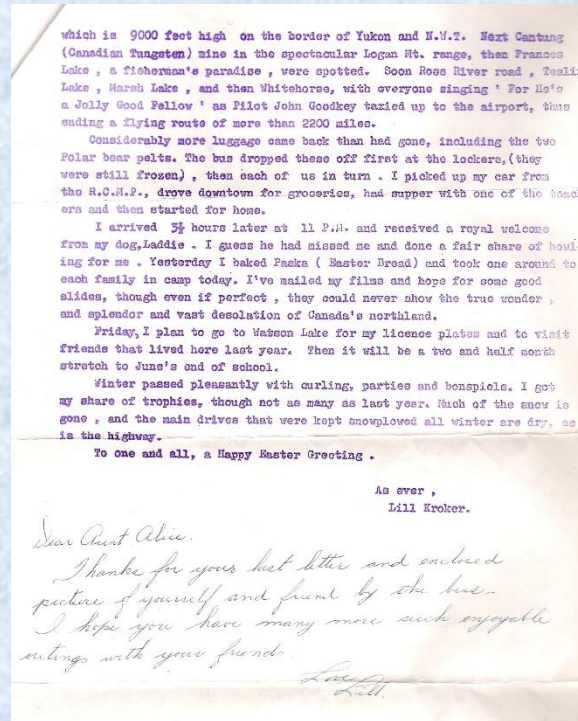 which is 9000 feet high on the border of Yukon and N.W.T. Next Cantung
(Canadian Tungsten) mine in the spectacular Logan Mt. range, then Frances
Lake , a fisherman's paradise , were spotted. Soon Ross River road , Teslin
Lake , Marsh Lake , and then Whitehorse, with everyone singing ' For He's
a Jolly Good Fellow ' as Pilot John Goodkey taxied up to the airport, thus
ending a flying route of more than 2200 miles.
Considerably more luggage came back than had gone, including the two
Polar bear pelts. The bus dropped these off first at the lockers,(they
were still frozen) , then each of us in turn . I picked up my car from
the R.C.M.P., drove downtown for groceries, had supper with one of the teach
ers and then started for home.
I arrived 3½ hours later at 11 P.M. and received a royal welcome
from my dog,Laddie . I guess he had missed me and done a fair share of howl-
ing for me . Yesterday I baked Paska ( Easter Bread) and took one around to
each family in camp today. I've mailed my films and hope for some good
slides, though even if perfect , they could never show the true wonder ,
and splendor and vast desolation of Canada's northland.
Friday, I plan to go to Watson Lake for my licence plates and to visit
friends that lived here last year. Then it will be a two and half month
stretch to June's end of school.
Winter passed pleasantly with curling, parties and bonspiels. I got
my share of trophies, though not as many as last year. Much of the snow is
gone , and the main drives that were kept snowplowed all winter are dry, as
is the highway.
To one and all, a Happy Easter Greeting .
As ever ,
Lill Kroker.
Dear Aunt Alice.
Thanks for your last letter and enclosed
picture of yourself and friend by the bus.
I hope you have many more such enjoyable
outings with your friends.
Love
Lill.